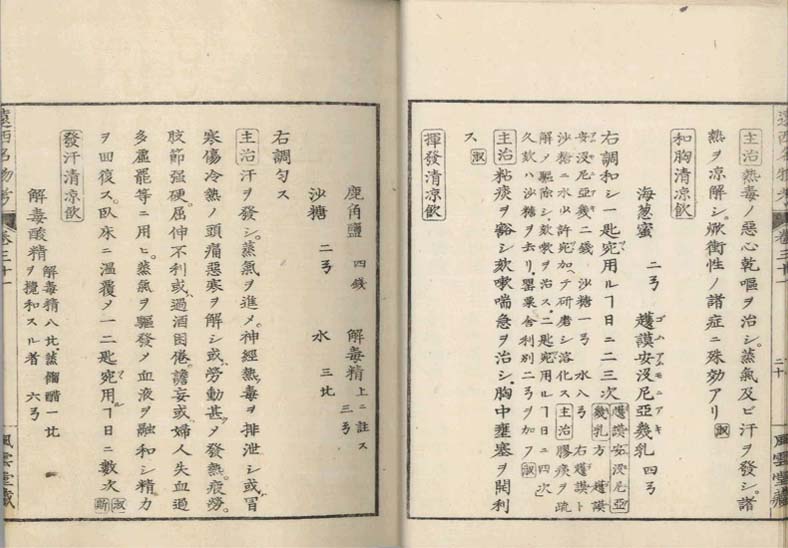 遠西名物考 卷三十一 二十 風雲堂藏
主治 熱毒ノ惡心乾嘔ヲ治シ。蒸氣及ビ汗ヲ發シ。諸
熱ヲ凉解シ。焮衝性ノ諸症ニ殊効アリ 淑
和胸清凉飲
海葱蜜 二弓 護謨安没尼亞幾乳 四弓
ゴムアムモニアキ
右調和シ一匙宛用ルヿ日ニ二三次 護謨安没尼亞幾乳方 護謨
安没尼亞幾二錢 沙糖一弓 水八弓 右護謨ト
沙糖ニ水少許宛加ヘテ研磨シ溶化ス 主治 膠痰ヲ疏
解メ驅除シ。欬嗽ヲ治ス。二匙宛用ルヿ日ニ四次
久欬ハ沙糖ヲ去リ。罌粟舍利別二弓ヲ加フ 淑
主治 粘痰ヲ豁シ欬嗽喘急ヲ治シ。胸中壅塞ヲ開利
ス 淑
揮發清凉飲
鹿角鹽 四錢 解毒精 上ニ註ス 三弓
沙糖 二弓 水 三比
右調匀ス
主治 汗ヲ發シ。蒸氣ヲ進メ。神經熱毒ヲ排泄シ或冒
寒傷冷熱ノ頭痛惡寒ヲ解シ或勞動甚メ發熱。疲勞。
肢節强硬。屈伸不利或過酒困倦。譫妄或婦人失血過
多虛羸等ニ用ヒ。蒸氣ヲ驅發メ血液ヲ融和シ精力
ヲ回復ス。臥床ニ溫覆メ一二匙宛用ルヿ日ニ數次 淑 斯
發汗清凉飲
解毒酸精 解毒精八比。蒸餾醋一比ヲ攪和スル者 六弓
遠西名物考 卷三十一 風雲堂藏